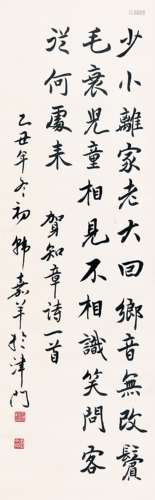 少小離家老大回鄉音無改鬢
毛衰兒童相見不相識笑問客
從何處來
賀知章詩一首
乙丑年冬初韓嘉羊於津門